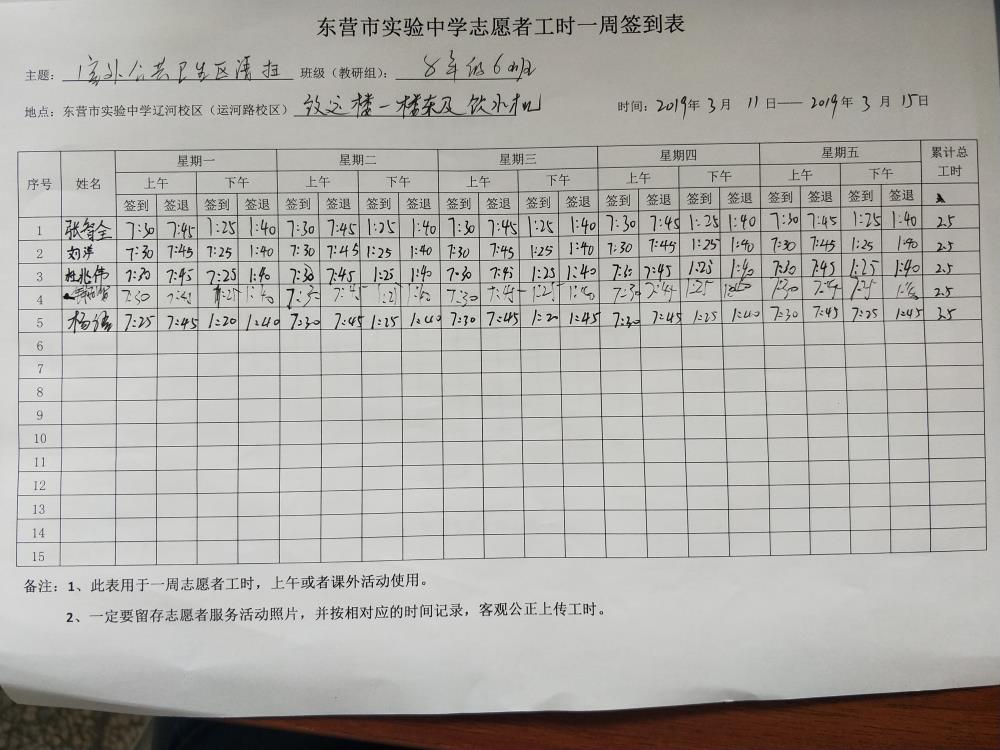 东营市实验中学志愿者工时一周签到表
主题：室外公共卫生区清扫 班级（教研组）：8年级6班
地点：东营市实验中学辽河校区（运河路校区）楼一楼东及饮水机 时间：2019年3月11日——2019年3月15日
序号 姓名 星期一 星期二 星期三 星期四 星期五 累计总工时
上午 下午 上午 下午 上午 下午 上午 下午 上午 下午
签到 签退 签到 签退 签到 签退 签到 签退 签到 签退 签到 签退 签到 签退 签到 签退 签到 签退 签到 签退
1 张智金 7:30 7:45 1:25 1:40 7:30 7:45 1:25 1:40 7:30 7:45 1:25 1:40 7:30 7:45 1:25 1:40 7:30 7:45 1:25 1:40 2.5
2 刘洋 7:30 7:45 7:25 1:40 7:30 7:45 1:25 1:40 7:30 7:45 1:25 1:40 7:30 7:45 1:25 1:40 7:30 7:45 1:25 1:40 2.5
3 兆伟 7:30 7:45 7:25 1:40 7:30 7:45 1:25 1:40 7:30 7:45 1:25 1:40 7:30 7:45 1:25 1:40 7:30 7:45 1:25 1:40 2.5
4 7:30 7:45 1:25 1:40 7:30 7:45 1:25 1:40 7:30 7:45 1:25 1:40 7:30 7:45 1:25 7:45 2.5
5 杨 7:25 7:45 1:20 1:40 7:30 7:45 1:25 1:40 7:30 7:45 1:20 1:45 7:30 7:45 1:25 1:40 7:30 7:45 7:25 1:45 3.5
6
7
8
9
10
11
12
13
14
15
备注：1、此表用于一周志愿者工时，上午或者课外活动使用。
2、一定要留存志愿者服务活动照片，并按相对应的时间记录，客观公正上传工时。